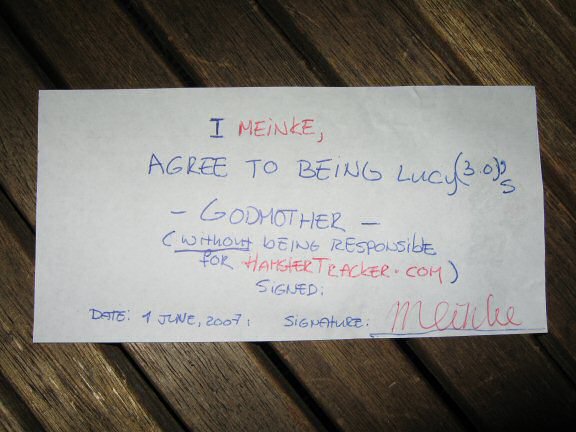 I MEINKE,
AGREE TO BEING LUCY(3.0)'S
- GODMOTHER -
(WITHOUT BEING RESPONSIBLE
FOR HAMSTERTRACKER.COM)
SIGNED:
DATE: 1 JUNE, 2007; SIGNATURE: Meinke